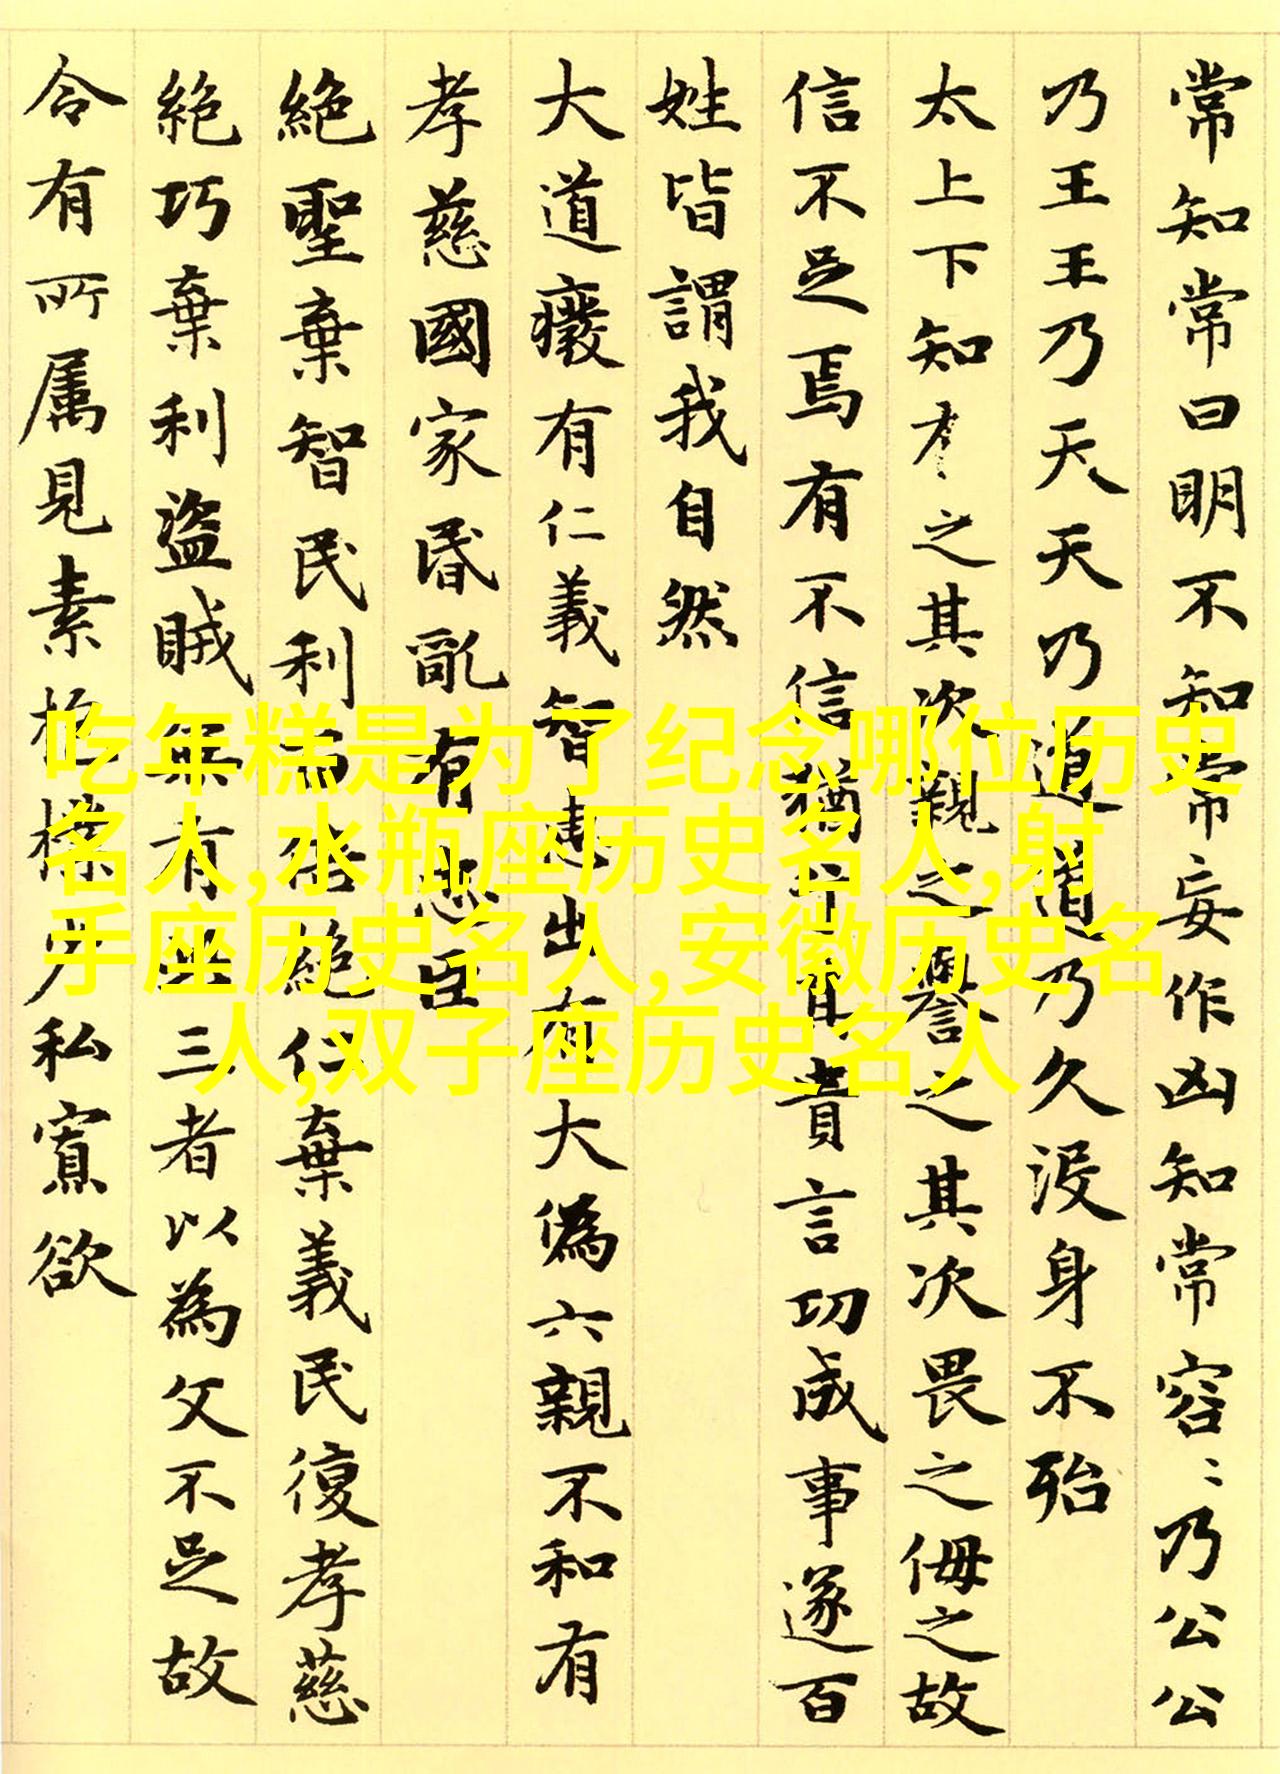 常知常曰明不知常妄作凶知常容〻乃公公
乃王王乃天天乃道道乃久没身不殆
太上下知有之其次親之譽之其次畏之侮之故
信不足焉有不信猶其貴言功成事遂百
姓皆謂我自然
大道癈有仁義智惠出有大偽六親不和有
孝慈國家昏亂有忠臣
絶聖棄智民利百倍絶仁棄義民復孝慈
絶巧棄利盜賊無有此三者以為文不足故
令有所属見素抱樸少私寡欲
吃年糕是为了纪念哪位历史
名人,水瓶座历史名人,射
手座历史名人,安徽历史名
人,双子座历史名人